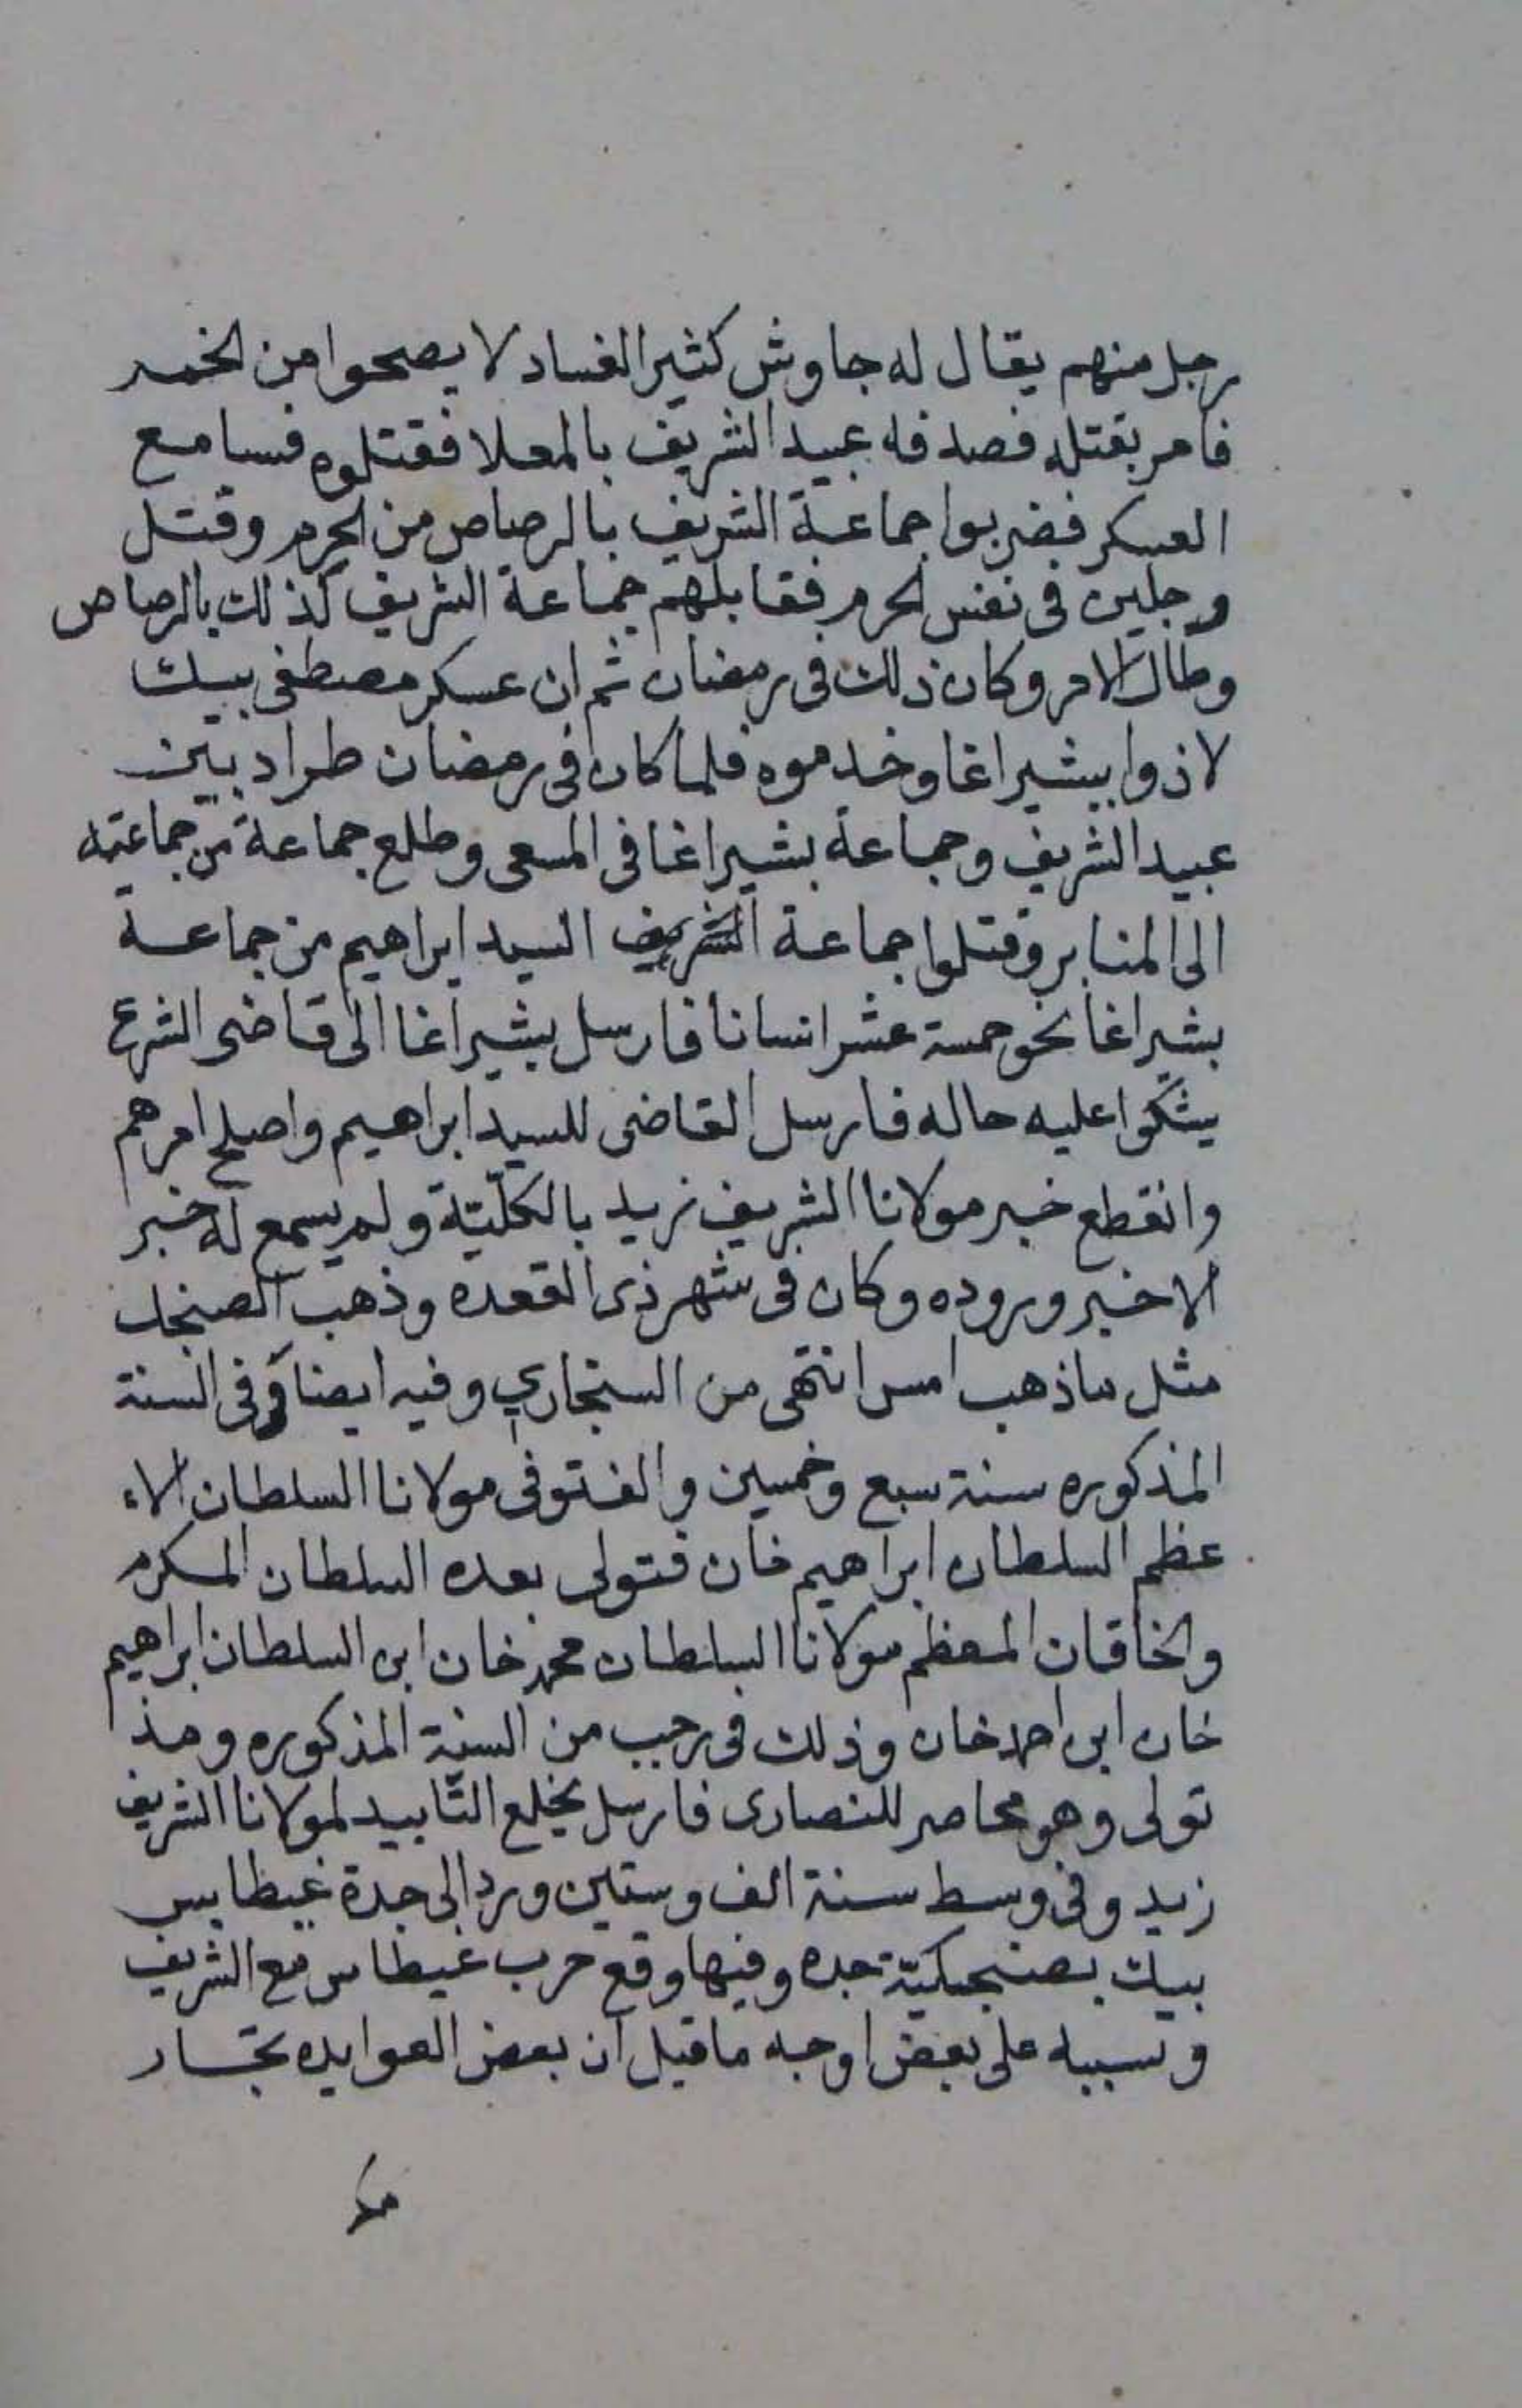 رجل منهم يقال له جاوش كثير الفساد لا يصحوا من الخمر
فامر بقتله فصدفه عبيد الشريف بالمعلا فقتلوه فسامع
العسكر فضربوا جماعة الشريف بالرصاص من الحرم وقتل
رجلين في نفس الحرم فقابلهم جماعة الشريف كذلك بالرصاص
وطال الامر وكان ذلك في رمضان ثم ان عسكر مصطفى بيك
لاذوا ببشير اغا وخدموه فلما كان في رمضان طراد بين
عبيد الشريف وجماعة بشير اغا في المسعى وطلع جماعة من جماعته
الى المنابر وقتلوا جماعة الشريف السيد ابراهيم من جماعة
بشير اغا نحو خمسة عشر انسانا فارسل بشير اغا الى قاضى الشرع
يشكوا عليه حاله فارسل القاضى للسيد ابراهيم واصلح امرهم
وانقطع خبر مولانا الشريف زيد بالكلّيّة ولم يسمع له خبر
الا خبر وروده وكان في شهر ذى القعده وذهب الصنجك
مثل ما ذهب امس انتهى من السنجاري وفيه ايضا وفى السنة
المذكوره سنة سبع وخمسين والف توفى مولانا السلطان الاء
عظم السلطان ابراهيم خان فتولى بعده السلطان المكرم
والخاقان المعظم مولانا السلطان محمد خان ابن السلطان ابراهيم
خان ابن احمد خان وذلك في رجب من السنة المذكوره ومنذ
تولى وهو محاصر للنصارى فارسل بخلع التّابيد لمولانا الشريف
زيد وفي وسط سنة الف وستين ورد الى جدة غيطابس
بيك بصنجكيّة جده وفيها وقع حرب غيطاس مع الشريف
وسببه على بعض اوجه ما قيل ان بعض العوايده تجار